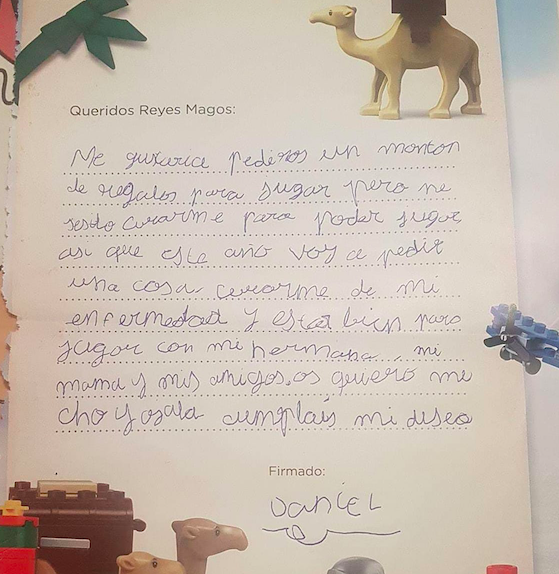 Queridos Reyes Magos:
Me gustaria pediros un monton
de regalos para jugar pero ne
sesito curarme para poder jugar
asi que este año voy a pedir
una cosa curarme de mi
enfermedad y estar bien para
jugar con mi hermana, mi
mama y mis amigos. os quiero mu
cho y ojala cumplais mi deseo
Firmado:
DANIEL